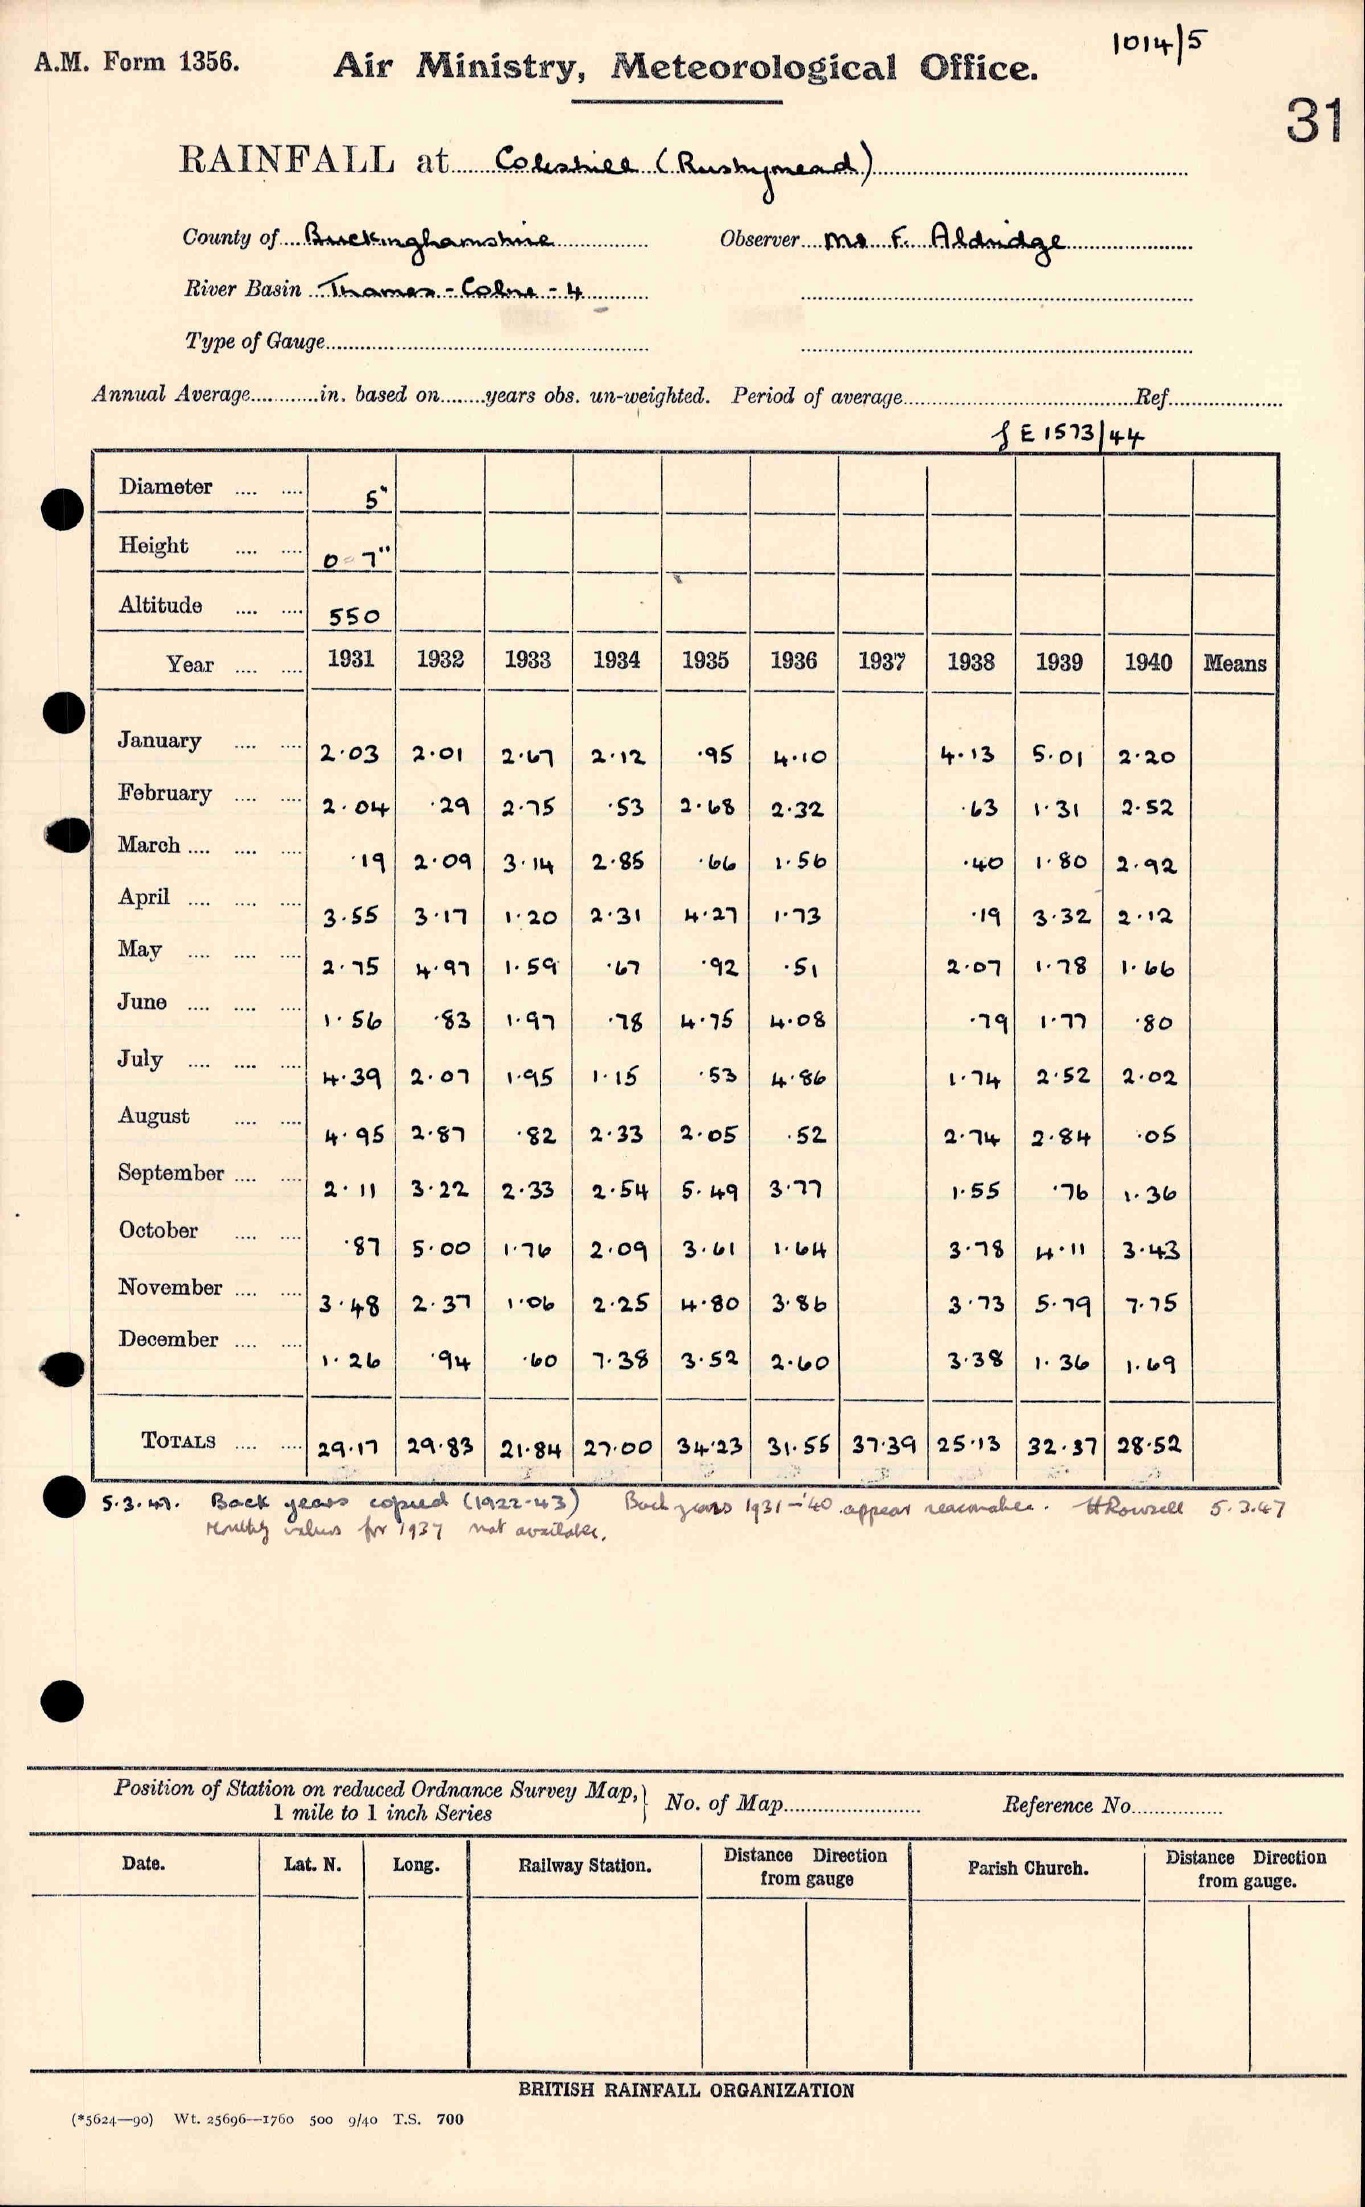 1014/5
A.M. Form 1356. Air Ministry, Meteorological Office.
31
RAINFALL at Coleshill (Rushymead)
County of Buckinghamshire Observer Mr F. Aldridge
River Basin Thames - Colne - 4
Type of Gauge
Annual Average in. based on years obs. un-weighted. Period of average Ref
E 1573/44
Diameter 5"
Height 0-7"
Altitude 550
Year 1931 1932 1933 1934 1935 1936 1937 1938 1939 1940 Means
January 2.03 2.01 2.67 2.12 .95 4.10 4.13 5.01 2.20
February 2.04 .29 2.75 .53 2.68 2.32 .63 1.31 2.52
March .19 2.09 3.14 2.85 .66 1.56 .40 1.80 2.92
April 3.55 3.17 1.20 2.31 4.27 1.73 .19 3.32 2.12
May 2.75 4.97 1.59 .67 .92 .51 2.07 1.78 1.66
June 1.56 .83 1.97 .78 4.75 4.08 .79 1.77 .80
July 4.39 2.07 1.95 1.15 .53 4.86 1.74 2.52 2.02
August 4.95 2.87 .82 2.33 2.05 .52 2.74 2.84 .05
September 2.11 3.22 2.33 2.54 5.49 3.77 1.55 .76 1.36
October .87 5.00 1.76 2.09 3.61 1.64 3.78 4.11 3.43
November 3.48 2.37 1.06 2.25 4.80 3.86 3.73 5.79 7.75
December 1.26 .94 .60 7.38 3.52 2.60 3.38 1.36 1.69
TOTALS 29.17 29.83 21.84 27.00 34.23 31.55 37.39 25.13 32.37 28.52
5.3.47. Back years copied (1922-43) Back years 1931-'40 appear reasonable. HRowsell 5.3.47
Monthly values for 1937 not available.
Position of Station on reduced Ordnance Survey Map, 1 mile to 1 inch Series No. of Map Reference No.
Date. Lat. N. Long. Railway Station. Distance Direction from gauge Parish Church. Distance Direction from gauge.
BRITISH RAINFALL ORGANIZATION
(*5624—90) Wt. 25696—1760 500 9/40 T.S. 700